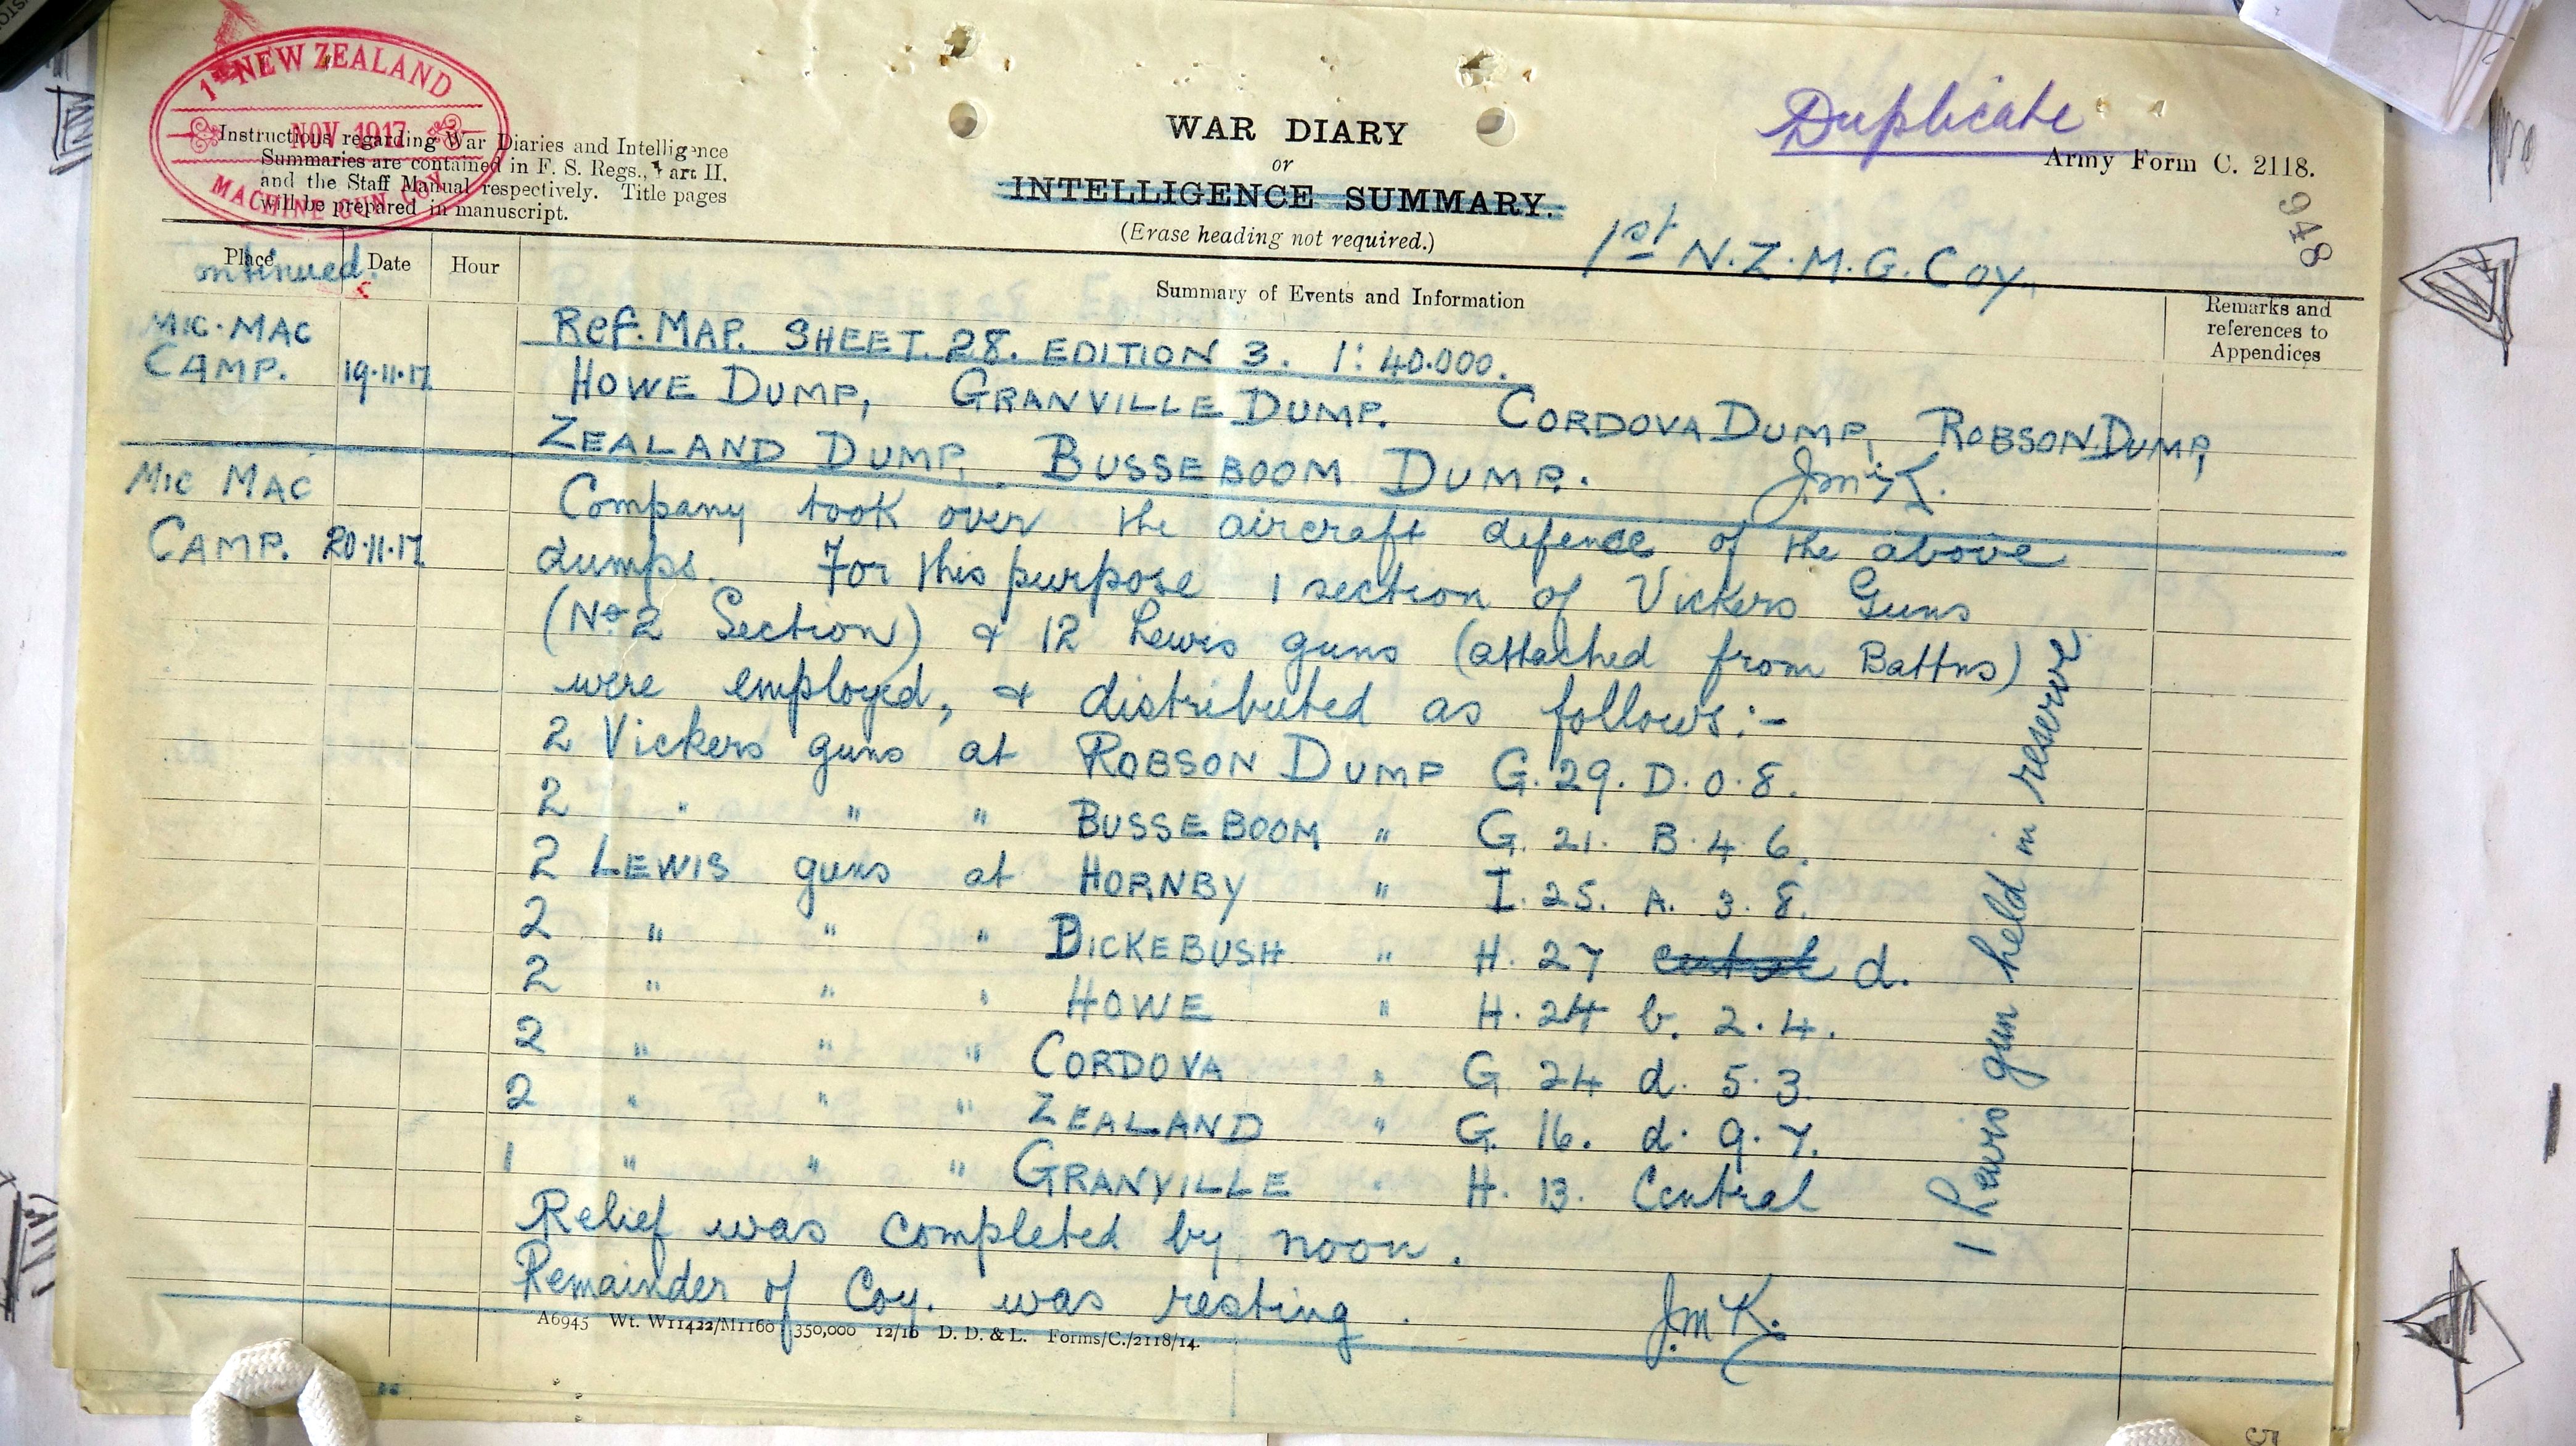 1st NEW ZEALAND
NOV 1917
MACHINE GUN COY
Instructions regarding War Diaries and Intelligence
Summaries are contained in F. S. Regs., Part II.
and the Staff Manual respectively. Title pages
will be prepared in manuscript.
WAR DIARY
or
INTELLIGENCE SUMMARY.
(Erase heading not required.)
Duplicate
Army Form C. 2118.
948
1st N.Z.M.G.Coy.
Place
ontinued.
Date
Hour
Summary of Events and Information
Remarks and
references to
Appendices
MIC·MAC
CAMP. 19·11·17
Ref. MAP. SHEET. 28. EDITION 3. 1:40.000.
HOWE DUMP, GRANVILLE DUMP. CORDOVA DUMP, ROBSON DUMP,
ZEALAND DUMP, BUSSEBOOM DUMP. JMcK.
MIC MAC
CAMP. 20·11·17
Company took over the aircraft defence of the above
dumps. For this purpose 1 section of Vickers Guns
(No 2 Section) & 12 Lewis guns (attached from Battns)
were employed, & distributed as follows:-
2 Vickers guns at ROBSON DUMP G.29.D.0.8.
2 " " " BUSSEBOOM " G. 21. B.4.6.
2 LEWIS guns at HORNBY " I. 25. A. 3. 8.
2 " " " DICKEBUSH " H. 27 central d.
2 " " " HOWE " H. 24 b. 2.4.
2 " " " CORDOVA " G 24 d. 5.3.
2 " " " ZEALAND " G. 16. d. 9.7.
1 " " " GRANVILLE " H. 13. Central
1 Lewis gun held in reserve
Relief was completed by noon.
Remainder of Coy. was resting. JMcK.
A6945 Wt. W11422/M1160 350,000 12/16 D. D. & L. Forms/C./2118/14.